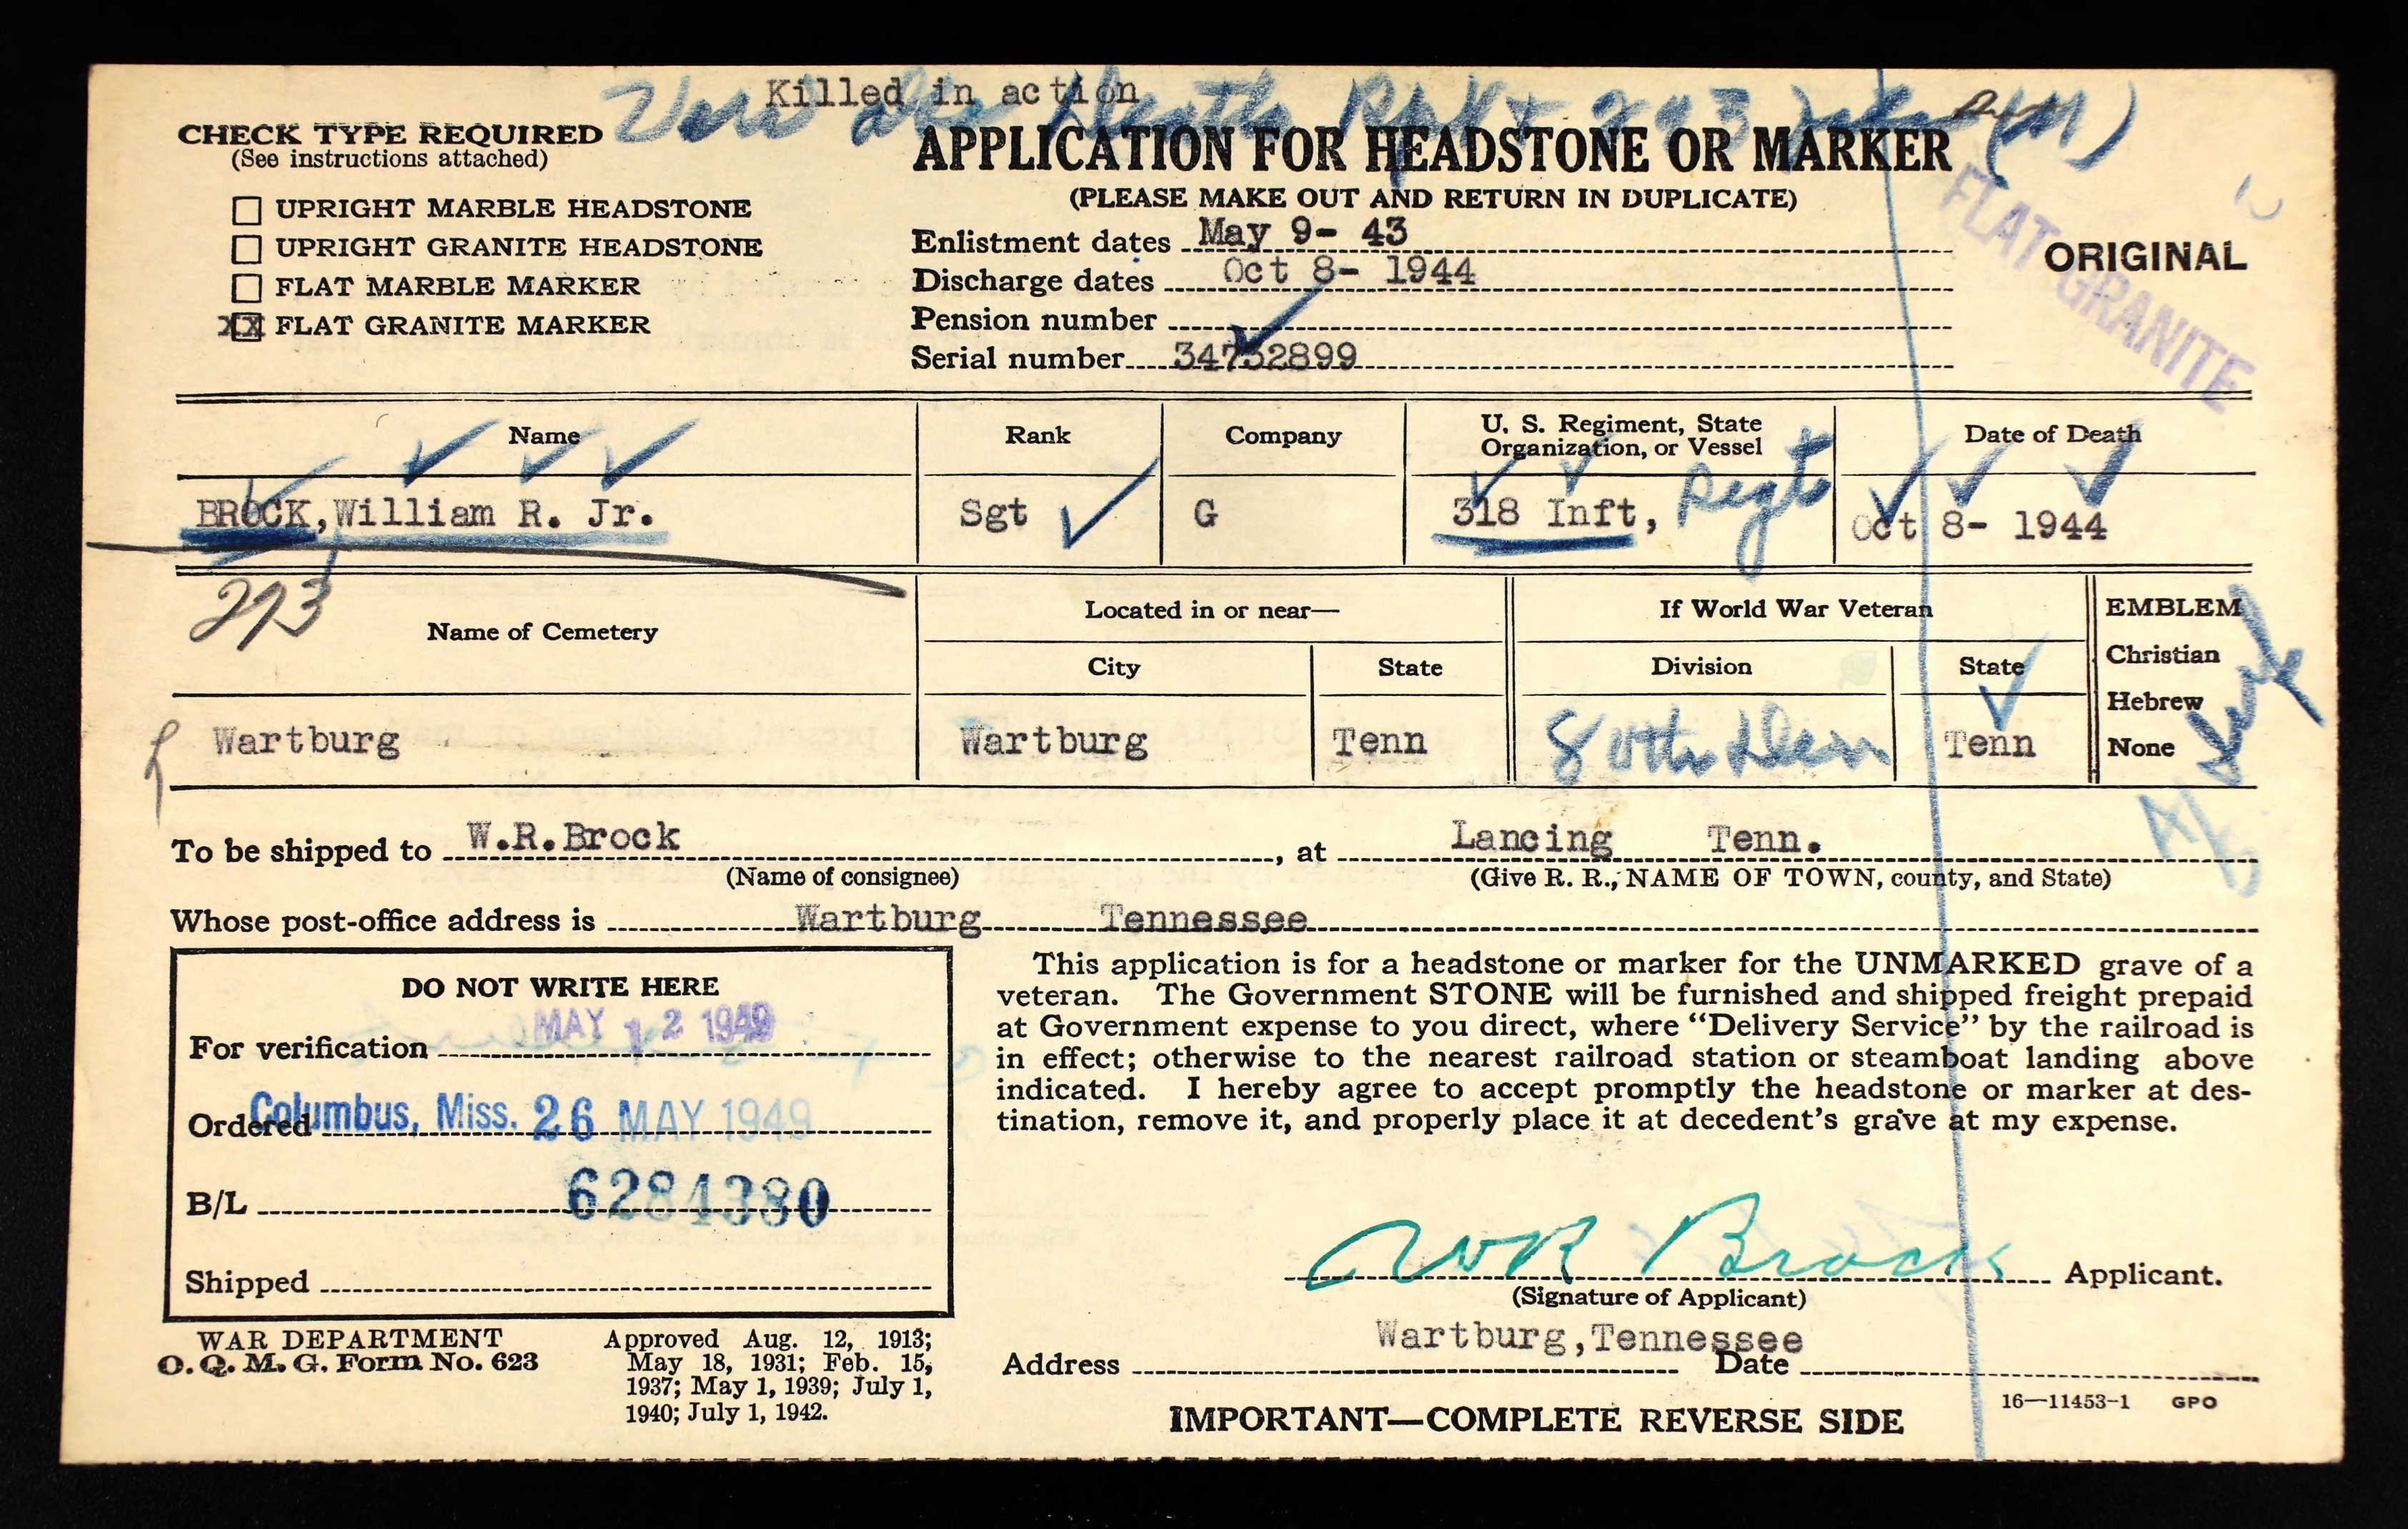 Killed in action
CHECK TYPE REQUIRED
(See instructions attached)
UPRIGHT MARBLE HEADSTONE
UPRIGHT GRANITE HEADSTONE
FLAT MARBLE MARKER
XX FLAT GRANITE MARKER
APPLICATION FOR HEADSTONE OR MARKER
(PLEASE MAKE OUT AND RETURN IN DUPLICATE)
Enlistment dates May 9- 43
Discharge dates Oct 8- 1944
Pension number
Serial number 34732899
ORIGINAL
FLAT GRANITE
Name
Rank
Company
U. S. Regiment, State
Organization, or Vessel
Date of Death
BROCK, William R. Jr.
Sgt
G
318 Inft, Regt
Oct 8- 1944
293
Name of Cemetery
Located in or near—
City
State
If World War Veteran
Division
State
EMBLEM
Christian
Hebrew
None
Wartburg
Wartburg
Tenn
80th
Tenn
To be shipped to W.R.Brock, at Lancing Tenn.
(Name of consignee)
(Give R. R., NAME OF TOWN, county, and State)
Whose post-office address is Wartburg Tennessee
DO NOT WRITE HERE
For verification MAY 12 1949
Ordered Columbus, Miss. 26 MAY 1949
B/L 6284380
Shipped
This application is for a headstone or marker for the UNMARKED grave of a
veteran. The Government STONE will be furnished and shipped freight prepaid
at Government expense to you direct, where “Delivery Service” by the railroad is
in effect; otherwise to the nearest railroad station or steamboat landing above
indicated. I hereby agree to accept promptly the headstone or marker at des-
tination, remove it, and properly place it at decedent's grave at my expense.
WR Brock Applicant.
(Signature of Applicant)
Wartburg, Tennessee
Address Date
WAR DEPARTMENT
O. Q. M. G. Form No. 623
Approved Aug. 12, 1913;
May 18, 1931; Feb. 15,
1937; May 1, 1939; July 1,
1940; July 1, 1942.
IMPORTANT—COMPLETE REVERSE SIDE
16—11453-1 GPO